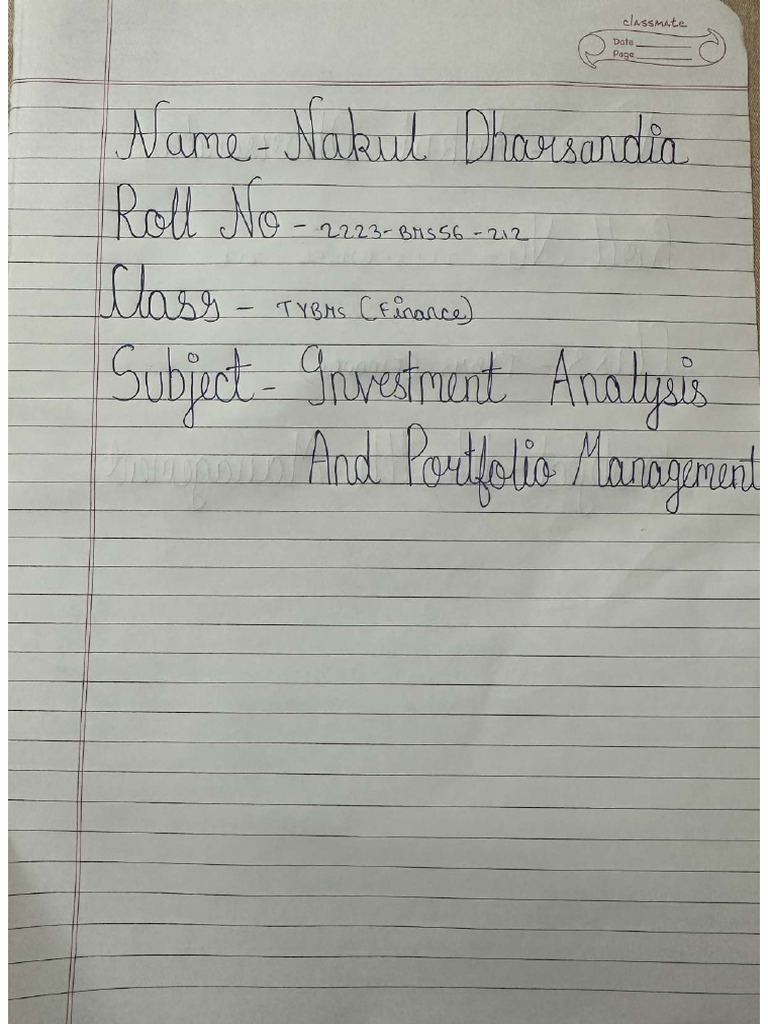 classmate
Date
Page
Name - Nakul Dharsandia
Roll No - 2223-BMS56-212
Class - TYBMS (Finance)
Subject - Investment Analysis
And Portfolio Management